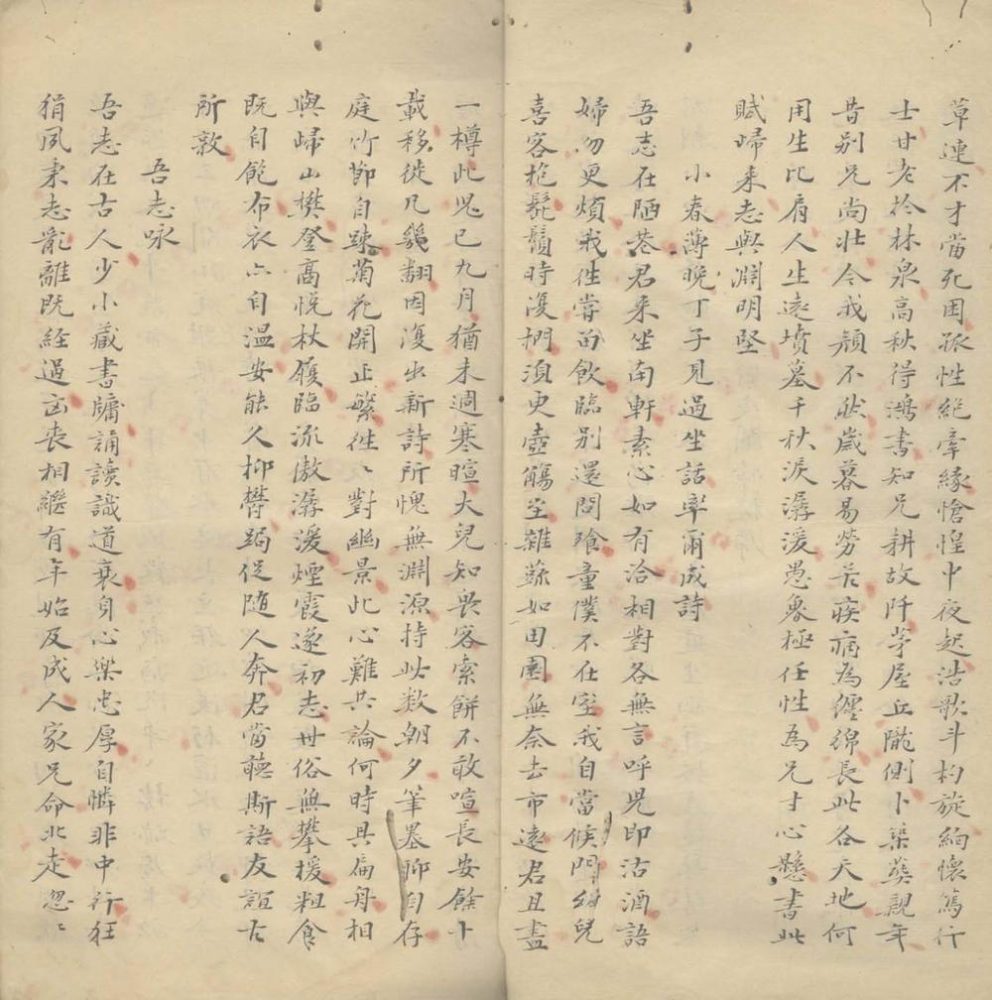 草連不才當死困孤性絕牽緣愴惶中夜起浩歌斗杓旋緬懷篤行
士甘老於林泉高秋得鴻書知兄耕故阡茅屋丘隴側卜築葬親年
昔別兄尚壯今我頹不然歲暮易勞苦疾病為纏綿長此各天地何
用生比肩人生遠墳墓千秋淚潺湲愚魯極任性為兄寸心懸書此
賦歸来志與淵明堅
小春薄晚丁子見過坐話率爾成詩
吾志在陋巷君来坐南軒素心如有洽相對各無言呼兒即沽酒語
婦勿更煩我性嘗苗飲臨別還問飧童僕不在室我自當候門幼兒
喜客抱髭鬚時復捫湏更壺觴至雜蔬如田園無奈去市遠君且盡
一樽此兒已九月猶未週寒暄大兒知畏客索餅不敢喧長安餘十
載移徙凡幾翻因復出新詩所愧無淵源持此数朝夕筆墨聊自存
庭竹節自踈菊花開正繁徃〻對幽景此心難共論何時具扁舟相
與歸山樊登高恱杖履臨流傲潺湲煙霞遂初志世俗無攀援粗食
既自飽布衣亦自溫安能久抑欝跼促随人奔君當聽斯語友誼古
所敦
吾志咏
吾志在古人少小藏書牘誦讀識道衰身心樂忠厚自憐非中行狂
狷夙秉志亂離既經過凶喪相繼有年始及成人家兄命北走忽〻